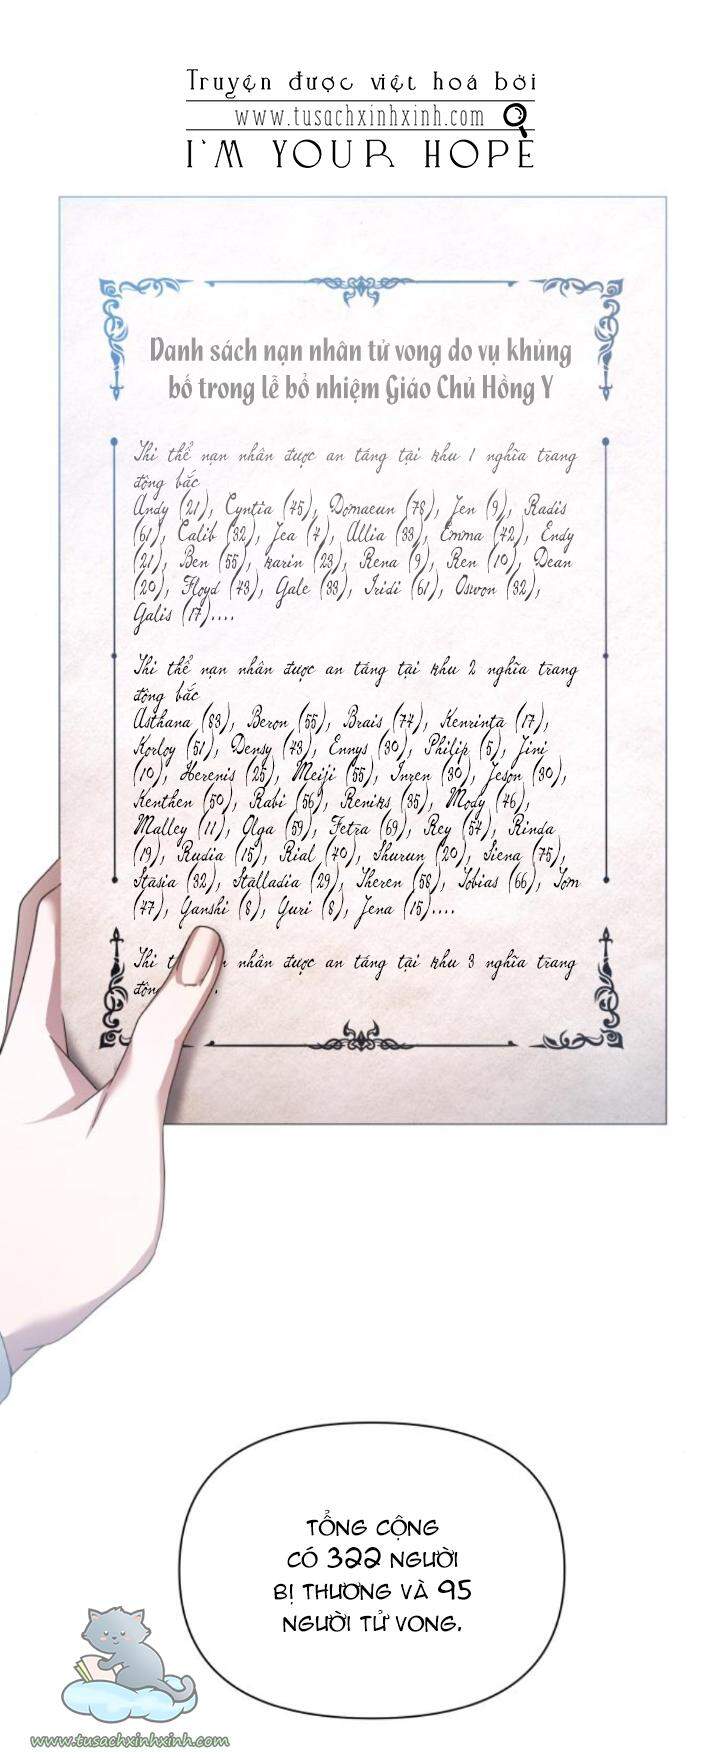 Truyện được việt hoá bởi
www.tusachxinhxinh.com
I'M YOUR HOPE
Danh sách nạn nhân tử vong do vụ khủng
bố trong lễ bổ nhiệm Giáo Chủ Hồng Y
Thi thể nạn nhân được an táng tại khu 1 nghĩa trang
đông bắc
Andy (21), Cyntia (45), Domaeun (78), Jen (9), Radis
(61), Calib (32), Jea (4), Allia (33), Emma (42), Endy
(21), Ben (55), karin (23), Rena (9), Ren (10), Dean
(20), Floyd (43), Gale (33), Iridi (61), Oswon (32),
Galis (17)....
Thi thể nạn nhân được an táng tại khu 2 nghĩa trang
đông bắc
Asthana (83), Beron (55), Brais (74), Kenrinta (17),
Korloy (51), Densy (43), Ennys (30), Philip (5), Jini
(10), Herenis (25), Meiji (55), Inren (30), Jeson (30),
Kenthen (50), Rabi (56), Reniks (35), Mody (46),
Malley (11), Olga (59), Fetra (69), Rey (54), Rinda
(19), Rudia (15), Rial (40), Shurun (20), Siena (75),
Stasia (32), Stalladia (29), Theren (58), Tobias (66), Tom
(47), Ganshi (8), Yuri (8), Jena (15)....
Thi t n nhân được an táng tại khu 3 nghĩa trang
đông
TỔNG CỘNG
CÓ 322 NGƯỜI
BỊ THƯƠNG VÀ 95
NGƯỜI TỬ VONG.
www.tusachxinhxinh.com